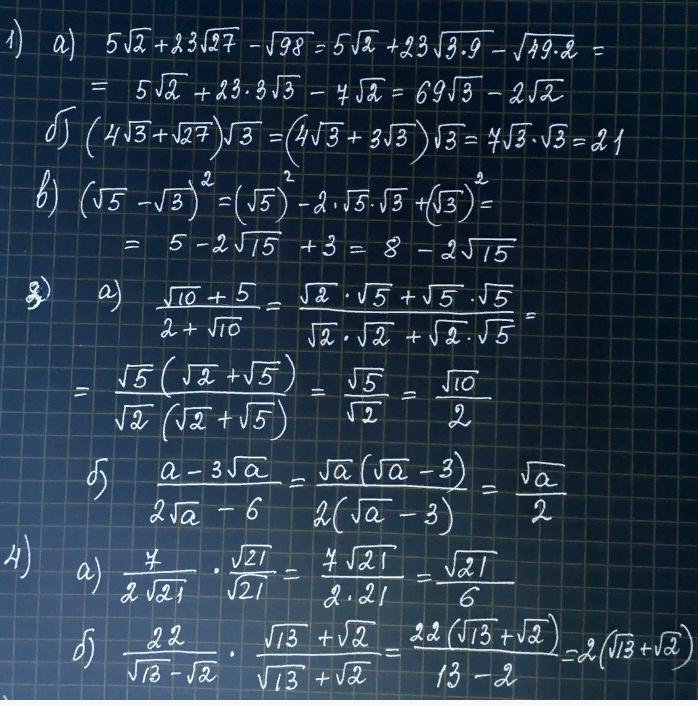 1) а) 5√2 + 23√27 − √98 = 5√2 + 23√(3·9) − √(49·2) =
= 5√2 + 23·3√3 − 7√2 = 69√3 − 2√2
б) (4√3 + √27)√3 = (4√3 + 3√3)√3 = 7√3·√3 = 21
в) (√5 − √3)² = (√5)² − 2·√5·√3 + (√3)² =
= 5 − 2√15 + 3 = 8 − 2√15
а) (√10 + 5)/(2 + √10) = (√2·√5 + √5·√5)/(√2·√2 + √2·√5) =
= (√5(√2 + √5))/(√2(√2 + √5)) = √5/√2 = √10/2
б) (a − 3√a)/(2√a − 6) = (√a(√a − 3))/(2(√a − 3)) = √a/2
4) а) 7/(2√21) · √21/√21 = (7√21)/(2·21) = √21/6
б) 22/(√13 − √2) · (√13 + √2)/(√13 + √2) = (22(√13 + √2))/(13 − 2) = 2(√13 + √2)